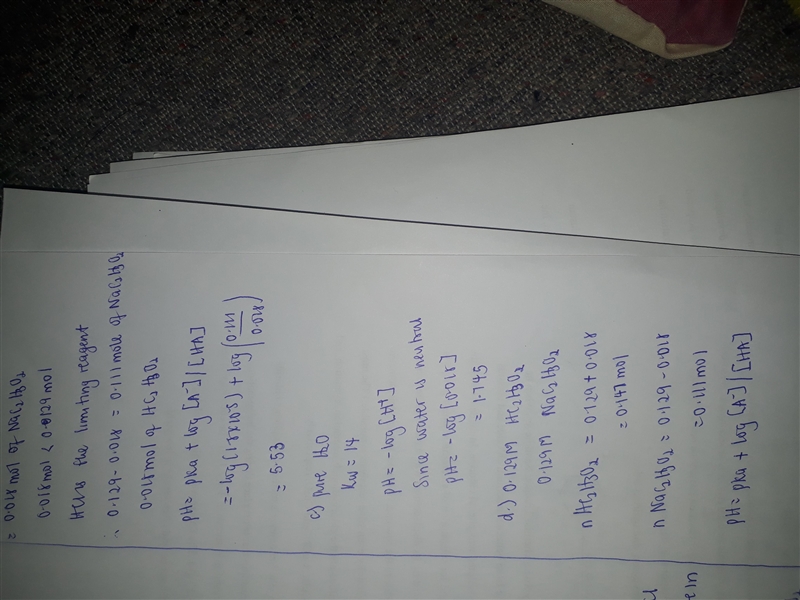 = 0.018 mol of NaC2H3O2
0.018 mol < 0.0129 mol
HCl is the limiting reagent
∴ 0.129 - 0.018 = 0.111 mole of NaC2H3O2
0.018 mol of HC2H3O2
pH = pka + log [A-] / [HA]
= -log (1.8x10-5) + log (0.111/0.018)
= 5.53
c) pure H2O
Kw = 14
pH = -log [H+]
Since water is neutral
pH = -log [0.018]
= 1.745
d.) 0.129M HC2H3O2
0.129M NaC2H3O2
n HC2H3O2 = 0.129 + 0.018
= 0.147 mol
n NaC2H3O2 = 0.129 - 0.018
= 0.111 mol
pH = pka + log [A-] / [HA]